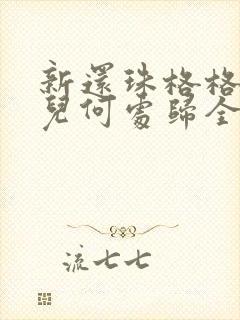 新還珠格格
兒何處歸全
流七七